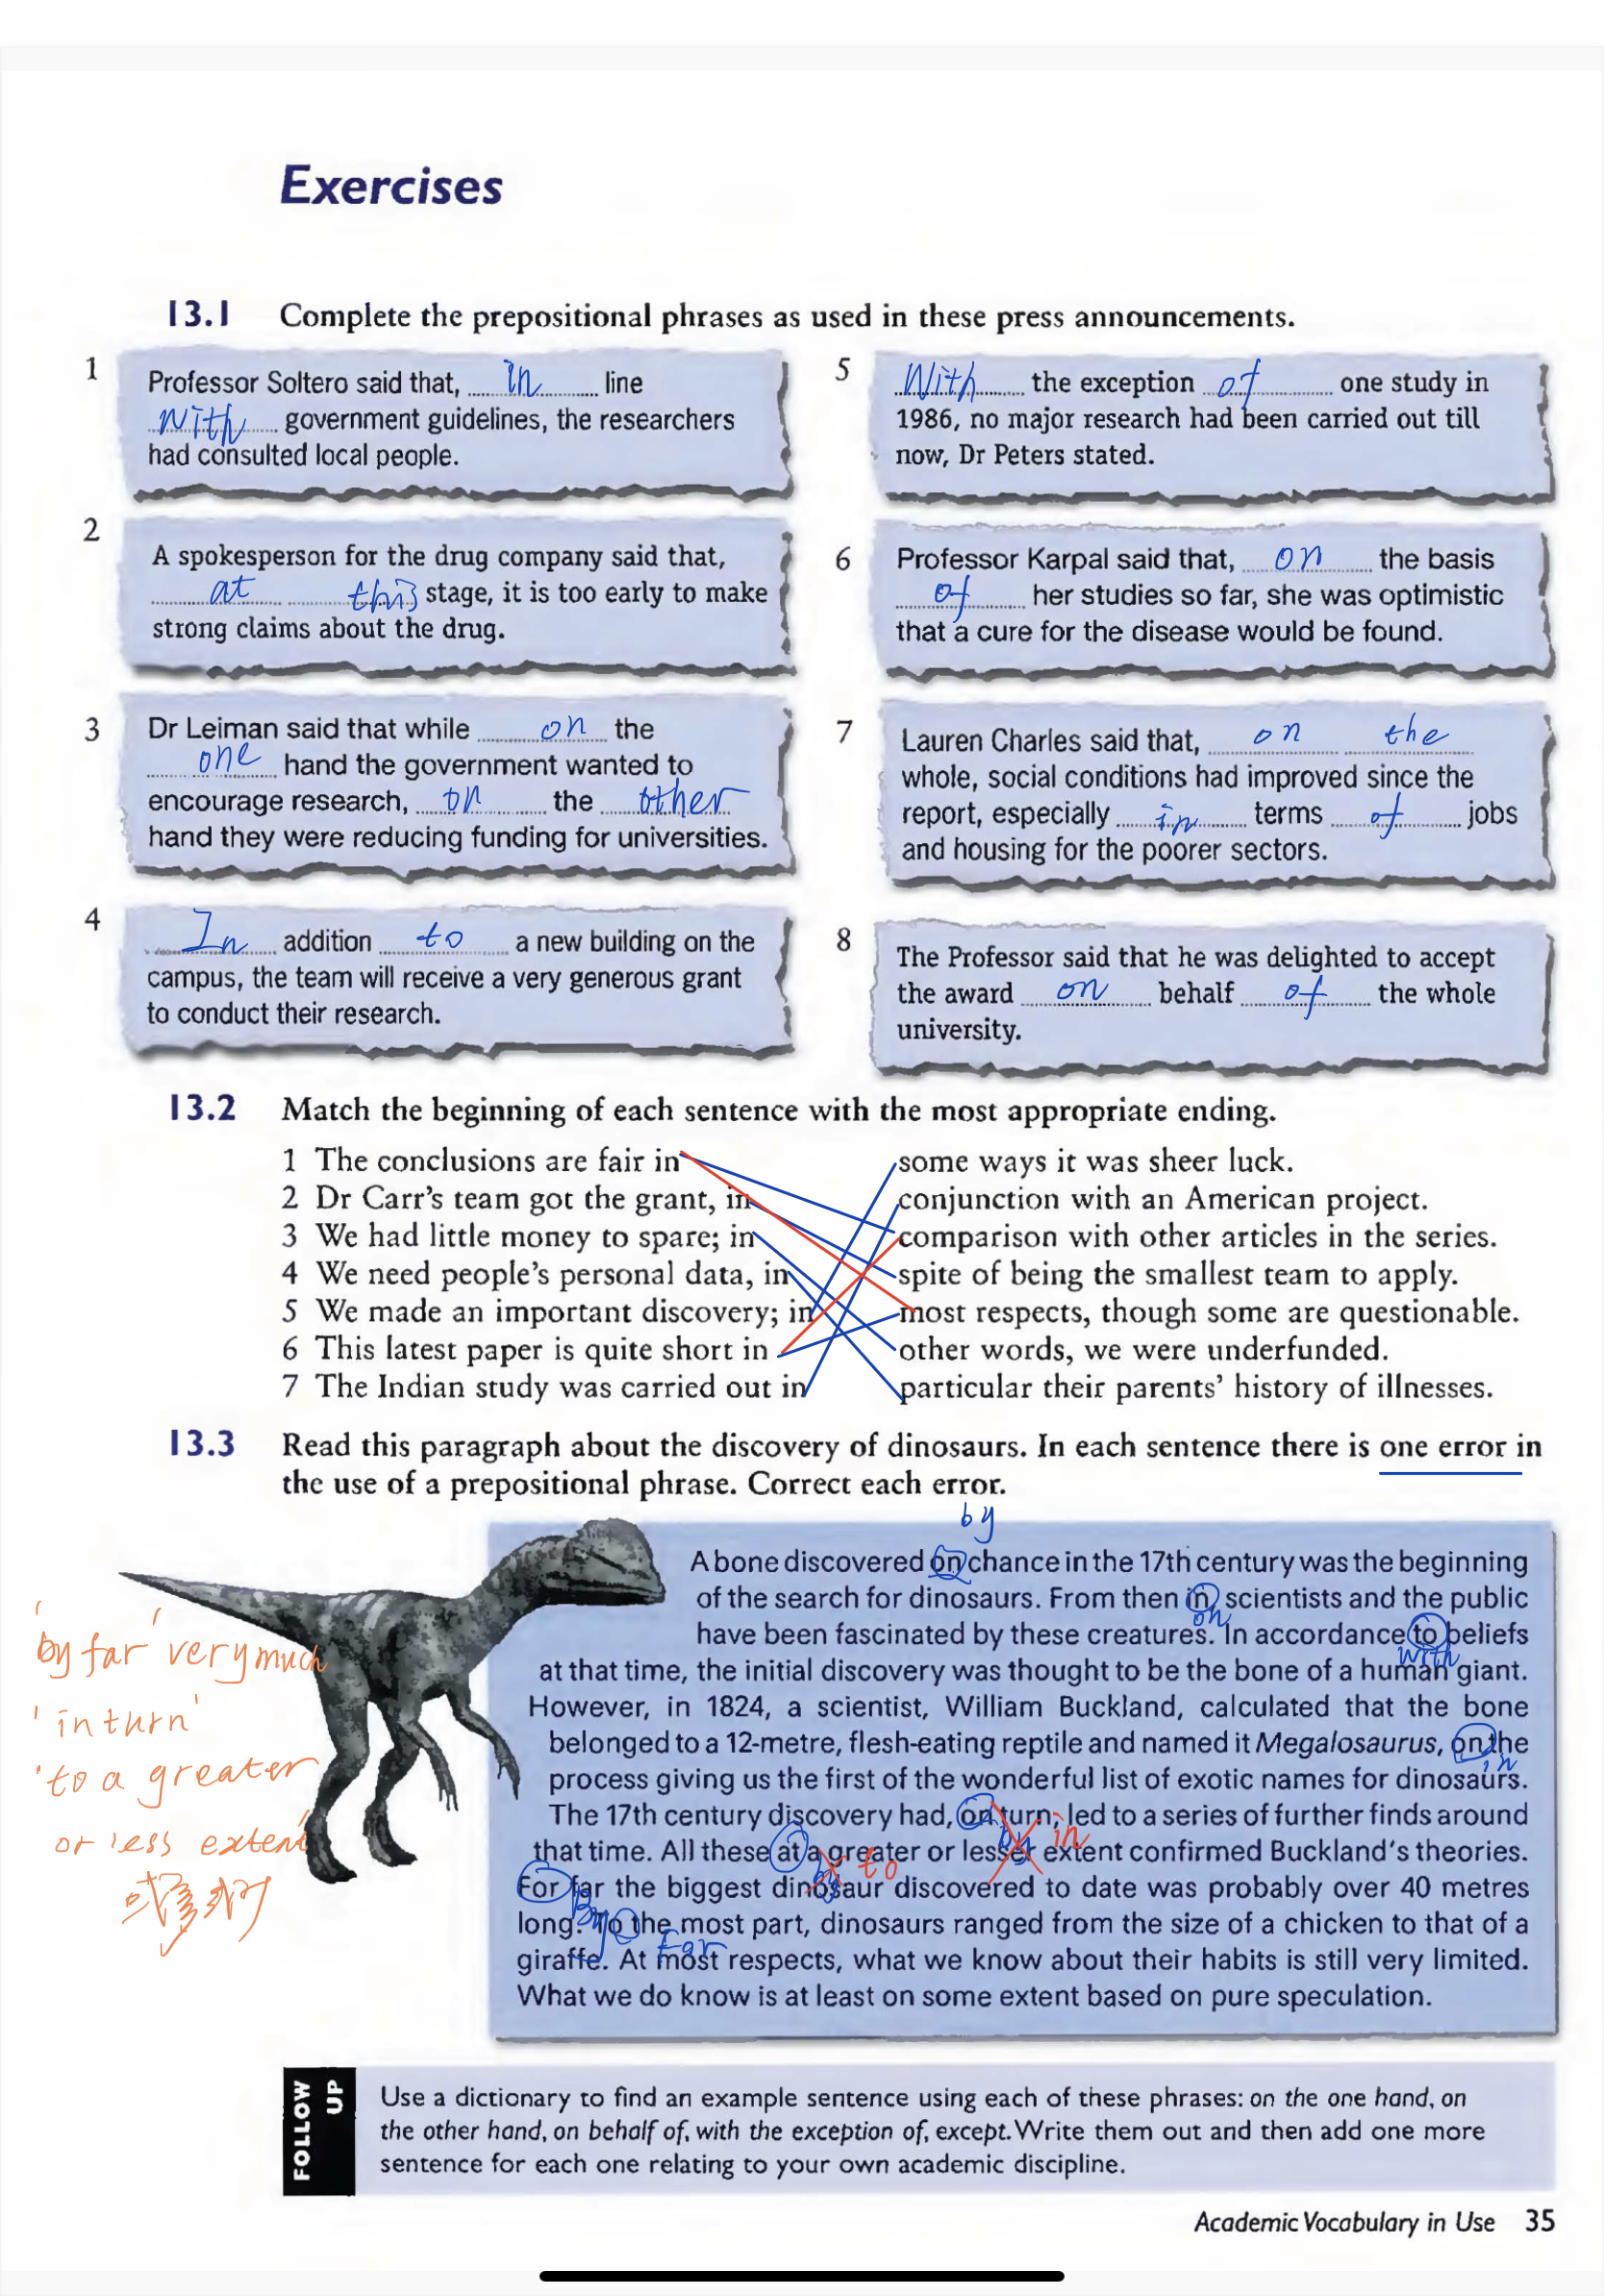 Exercises
13.1 Complete the prepositional phrases as used in these press announcements.
1
Professor Soltero said that, in line
with government guidelines, the researchers
had consulted local people.
2
A spokesperson for the drug company said that,
at this stage, it is too early to make
strong claims about the drug.
3
Dr Leiman said that while on the
one hand the government wanted to
encourage research, on the other
hand they were reducing funding for universities.
4
In addition to a new building on the
campus, the team will receive a very generous grant
to conduct their research.
5
With the exception of one study in
1986, no major research had been carried out till
now, Dr Peters stated.
6
Professor Karpal said that, on the basis
of her studies so far, she was optimistic
that a cure for the disease would be found.
7
Lauren Charles said that, on the
whole, social conditions had improved since the
report, especially in terms of jobs
and housing for the poorer sectors.
8
The Professor said that he was delighted to accept
the award on behalf of the whole
university.
13.2 Match the beginning of each sentence with the most appropriate ending.
1 The conclusions are fair in some ways it was sheer luck.
2 Dr Carr's team got the grant, in conjunction with an American project.
3 We had little money to spare; in comparison with other articles in the series.
4 We need people's personal data, in spite of being the smallest team to apply.
5 We made an important discovery; in most respects, though some are questionable.
6 This latest paper is quite short in other words, we were underfunded.
7 The Indian study was carried out in particular their parents' history of illnesses.
13.3 Read this paragraph about the discovery of dinosaurs. In each sentence there is one error in
the use of a prepositional phrase. Correct each error.
by
A bone discovered on chance in the 17th century was the beginning
of the search for dinosaurs. From then in scientists and the public
on
have been fascinated by these creatures. In accordance to beliefs
with
at that time, the initial discovery was thought to be the bone of a human giant.
However, in 1824, a scientist, William Buckland, calculated that the bone
belonged to a 12-metre, flesh-eating reptile and named it Megalosaurus, on the
in
process giving us the first of the wonderful list of exotic names for dinosaurs.
The 17th century discovery had, on turn, led to a series of further finds around
by in
that time. All these at a greater or lesser extent confirmed Buckland's theories.
by to
For far the biggest dinosaur discovered to date was probably over 40 metres
By
long. To the most part, dinosaurs ranged from the size of a chicken to that of a
For
giraffe. At most respects, what we know about their habits is still very limited.
What we do know is at least on some extent based on pure speculation.
'by far' very much
'in turn'
'to a greater
or less extent
FOLLOW UP
Use a dictionary to find an example sentence using each of these phrases: on the one hand, on
the other hand, on behalf of, with the exception of, except. Write them out and then add one more
sentence for each one relating to your own academic discipline.
Academic Vocabulary in Use 35